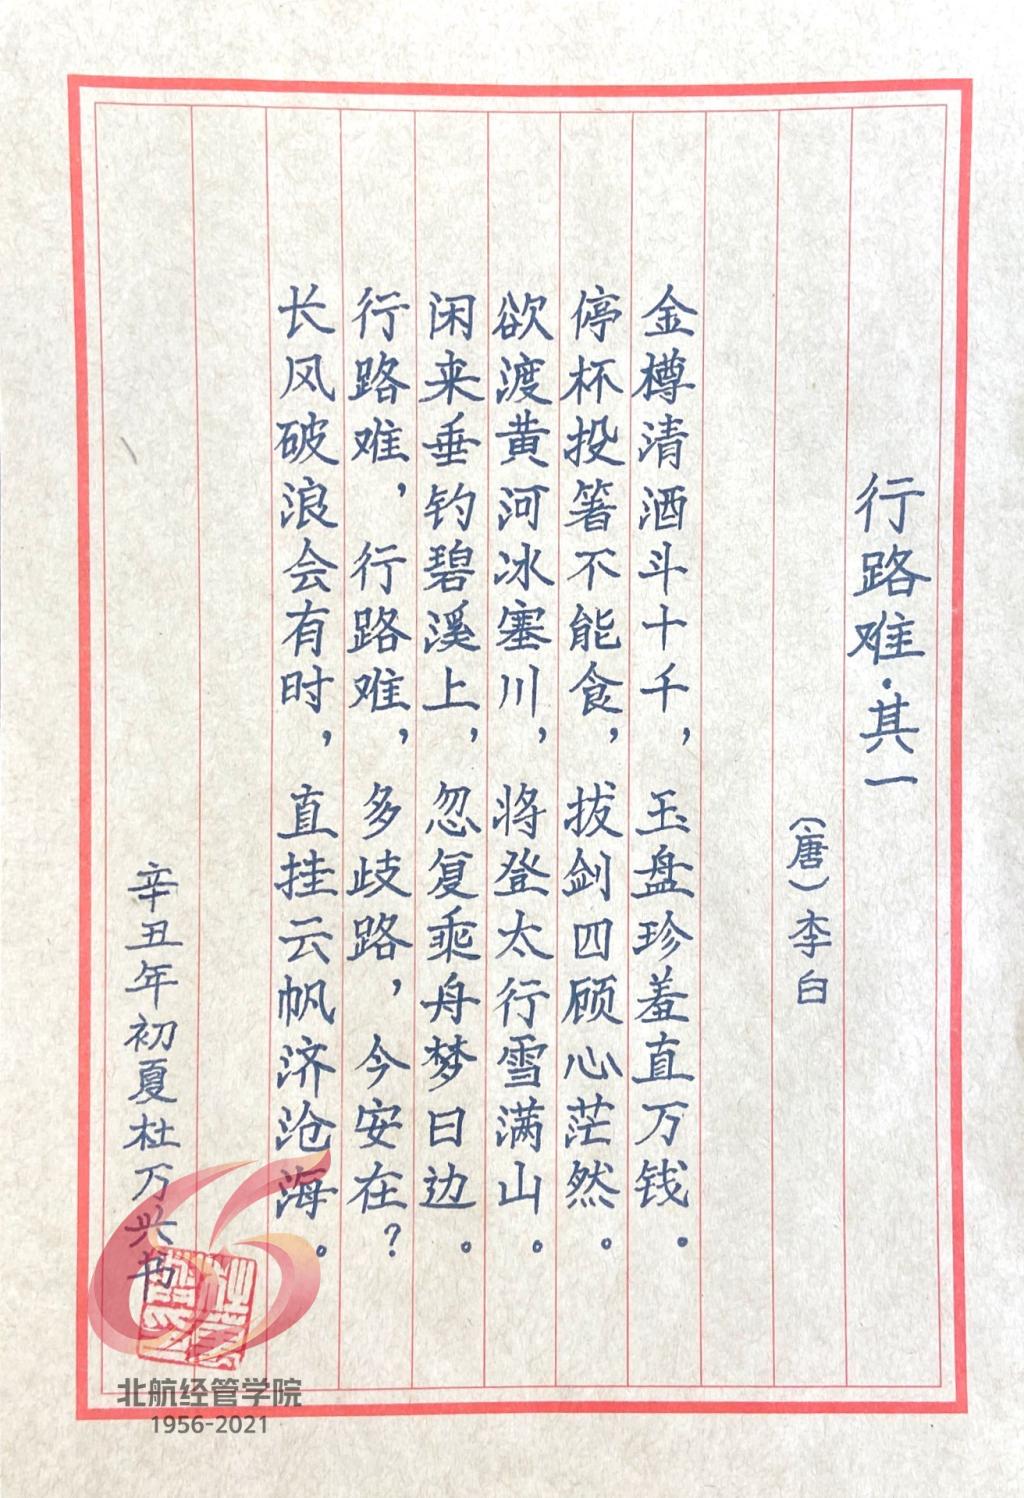 行路难·其一
（唐）李白
金樽清酒斗十千，玉盘珍羞直万钱。
停杯投箸不能食，拔剑四顾心茫然。
欲渡黄河冰塞川，将登太行雪满山。
闲来垂钓碧溪上，忽复乘舟梦日边。
行路难，行路难，多歧路，今安在？
长风破浪会有时，直挂云帆济沧海。
辛丑年初夏杜万兴书
北航经管学院
1956-2021